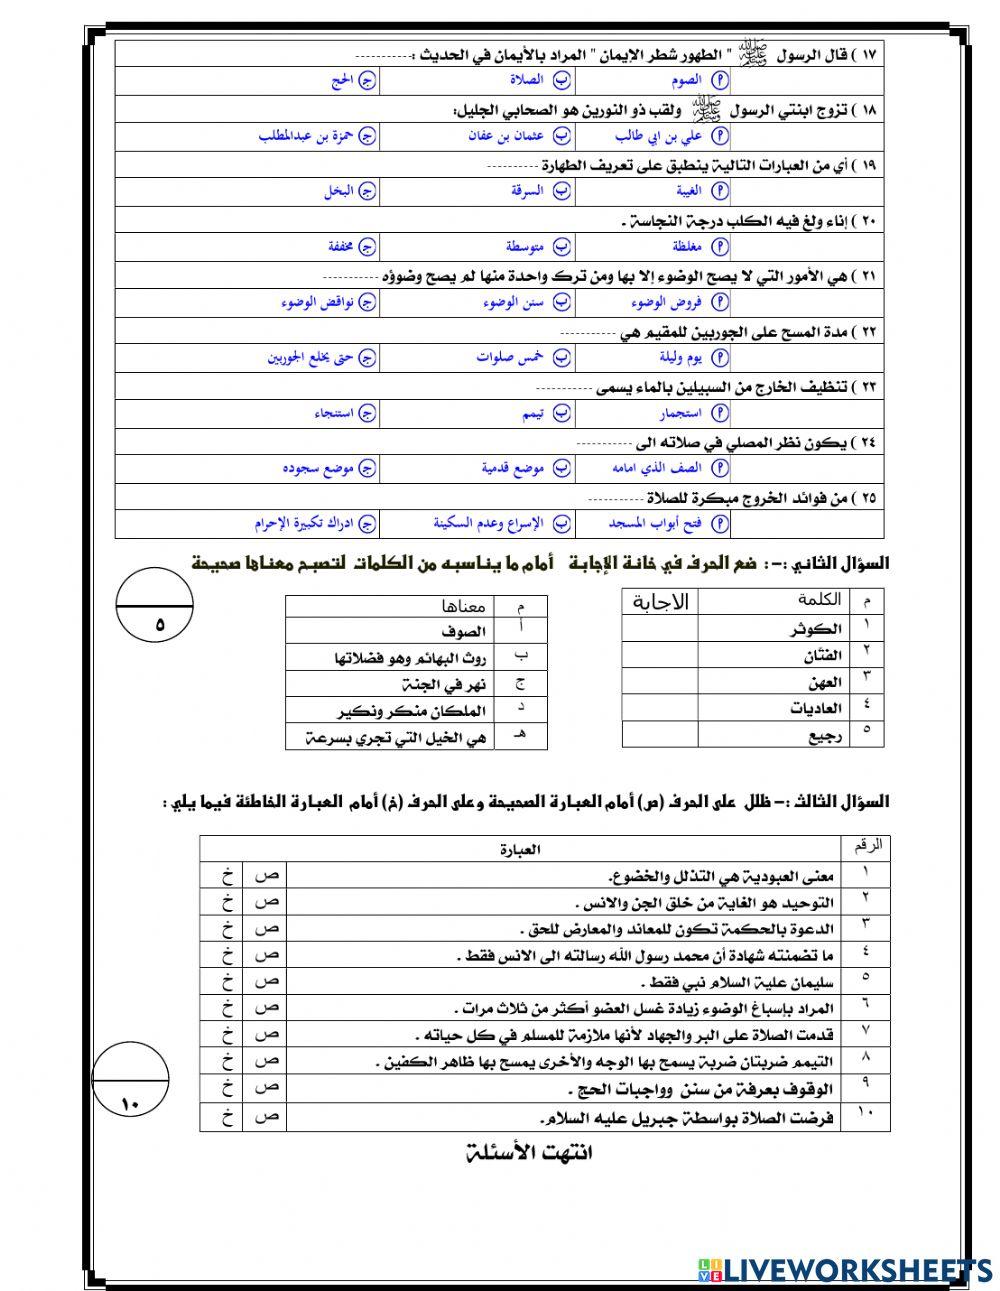 ١٧ ) قال الرسول ﷺ " الطهور شطر الإيمان " المراد بالأيمان في الحديث :-----------
أ الصوم ب الصلاة ج الحج
١٨ ) تزوج ابنتي الرسول ﷺ ولقب ذو النورين هو الصحابي الجليل:
أ علي بن ابي طالب ب عثمان بن عفان ج حمزة بن عبدالمطلب
١٩ ) أي من العبارات التالية ينطبق على تعريف الطهارة ----------
أ الغيبة ب السرقة ج البخل
٢٠ ) إناء ولغ فيه الكلب درجة النجاسة .
أ مغلظة ب متوسطة ج مخففة
٢١ ) هي الأمور التي لا يصح الوضوء إلا بها ومن ترك واحدة منها لم يصح وضوؤه -----------
أ فروض الوضوء ب سنن الوضوء ج نواقض الوضوء
٢٢ ) مدة المسح على الجوربين للمقيم هي -----------
أ يوم وليلة ب خمس صلوات ج حتى يخلع الجوربين
٢٣ ) تنظيف الخارج من السبيلين بالماء يسمى -----------
أ استجمار ب تيمم ج استنجاء
٢٤ ) يكون نظر المصلي في صلاته الى -----------
أ الصف الذي امامه ب موضع قدمية ج موضع سجوده
٢٥ ) من فوائد الخروج مبكرة للصلاة -----------
أ فتح أبواب المسجد ب الإسراع وعدم السكينة ج ادراك تكبيرة الإحرام
السؤال الثاني :- : ضع الحرف في خانة الإجابة أمام ما يناسبه من الكلمات لتصبح معناها صحيحة
٥
م الكلمة الاجابة
١ الكوثر
٢ الفتَّان
٣ العهن
٤ العاديات
٥ رجيع
م معناها
أ الصوف
ب روث البهائم وهو فضلاتها
ج نهر في الجنة
د الملكان منكر ونكير
هـ هي الخيل التي تجري بسرعة
السؤال الثالث :- ظلل على الحرف (ص) أمام العبارة الصحيحة وعلى الحرف (خ) أمام العبارة الخاطئة فيما يلي :
الرقم العبارة
١ معنى العبودية هي التذلل والخضوع. ص خ
٢ التوحيد هو الغاية من خلق الجن والانس . ص خ
٣ الدعوة بالحكمة تكون للمعاند والمعارض للحق . ص خ
٤ ما تضمنته شهادة أن محمد رسول الله رسالته الى الانس فقط . ص خ
٥ سليمان علية السلام نبي فقط . ص خ
٦ المراد بإسباغ الوضوء زيادة غسل العضو أكثر من ثلاث مرات . ص خ
٧ قدمت الصلاة على البر والجهاد لأنها ملازمة للمسلم في كل حياته . ص خ
٨ التيمم ضربتان ضربة يسمح بها الوجه والأخرى يمسح بها ظاهر الكفين . ص خ
٩ الوقوف بعرفة من سنن وواجبات الحج . ص خ
١٠ فرضت الصلاة بواسطة جبريل عليه السلام. ص خ
١٠
انتهت الأسئلة
LIVE LIVEWORKSHEETS